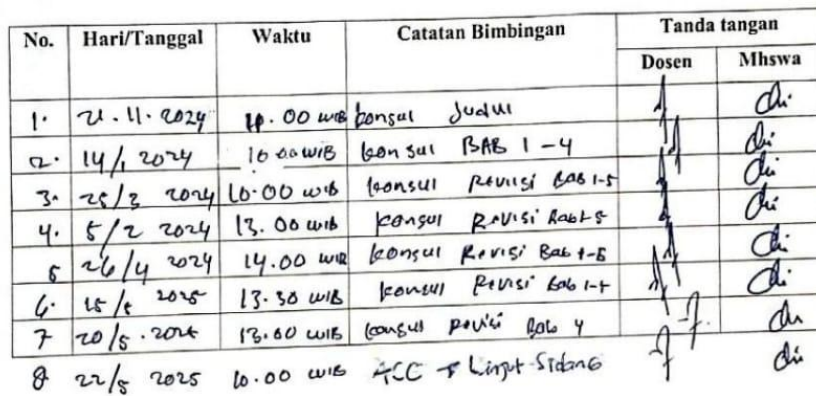 No. Hari/Tanggal Waktu Catatan Bimbingan Tanda tangan
Dosen Mhswa
1. 21.11.2024 10.00 WIB konsul Judul
2. 14/1 2024 10.00 WIB konsul BAB 1-4
3. 25/3 2024 10.00 WIB konsul Revisi BAB 1-5
4. 5/2 2024 13.00 WIB konsul Revisi Bab 1-5
5 26/4 2024 14.00 WIB konsul Revisi Bab 1-5
6. 15/5 2025 13.30 WIB konsul Revisi Bab 1-4
7 20/5.2025 13.00 WIB konsul Revisi Bab 4
8 22/5 2025 10.00 WIB ACC Sidang